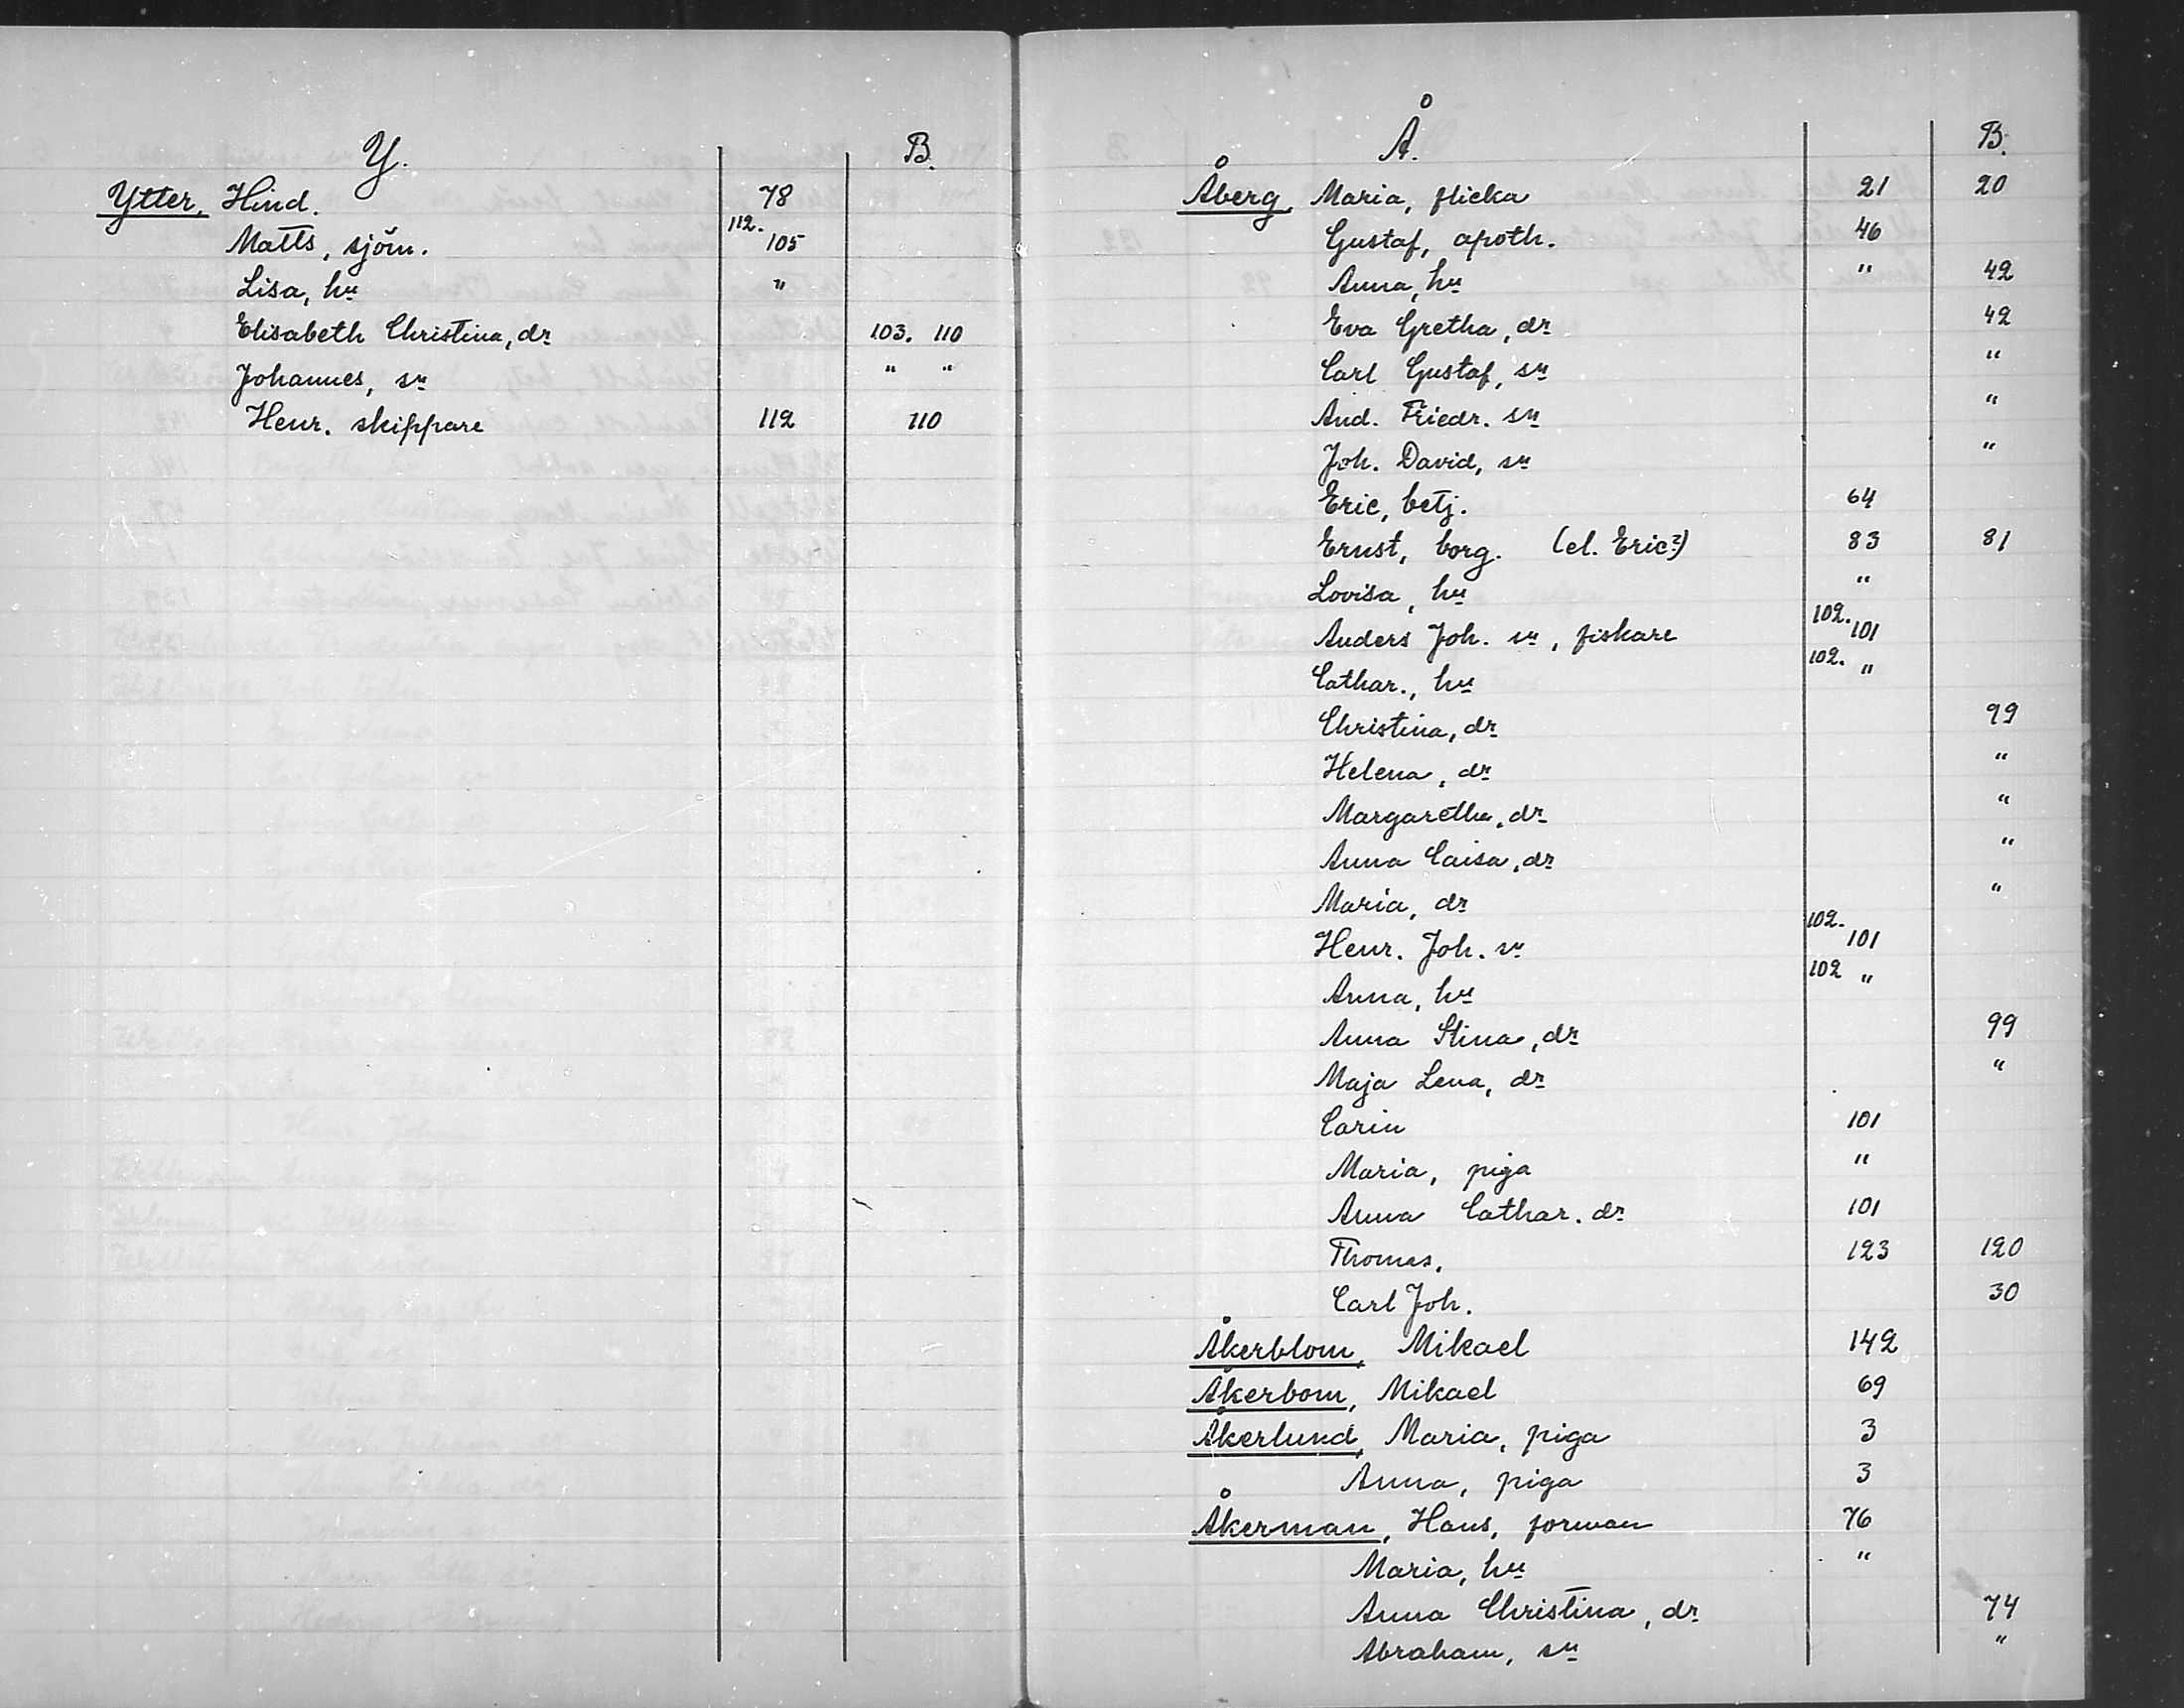 Y. B.
Ytter, Hind. 78
Matts, sjöm. 112. 105
Lisa, hu "
Elisabeth Christina, dr 103. 110
Johannes, sn " "
Henr. skippare 112 110
Å. B.
Åberg, Maria, flicka 21 20
Gustaf, apoth. 46
Anna, hu " 42
Eva Gretha, dr 42
Carl Gustaf, sn "
And. Friedr. sn "
Joh. David, sn "
Eric, betj. 64
Ernst, borg. (el. Eric?) 83 81
Lovisa, hu "
Anders Joh. sn, fiskare 102. 101
Cathar., hu 102. "
Christina, dr 99
Helena, dr "
Margaretha, dr "
Anna Caisa, dr "
Maria, dr "
Henr. Joh. sn 102. 101
Anna, hu 102 "
Anna Stina, dr 99
Maja Lena, dr "
Carin 101
Maria, piga "
Anna Cathar. dr 101
Thomas, 123 120
Carl Joh. 30
Åkerblom, Mikael 142
Åkerbom, Mikael 69
Åkerlund, Maria, piga 3
Anna, piga 3
Åkerman, Hans, forman 76
Maria, hu "
Anna Christina, dr 74
Abraham, sn "